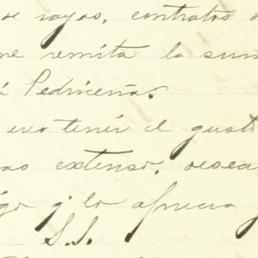 de rayas, contratos
me remita la sum
á Pedriceña.
creo tener el gust
mas extenso, desea
go y lo aprecia
S.S.